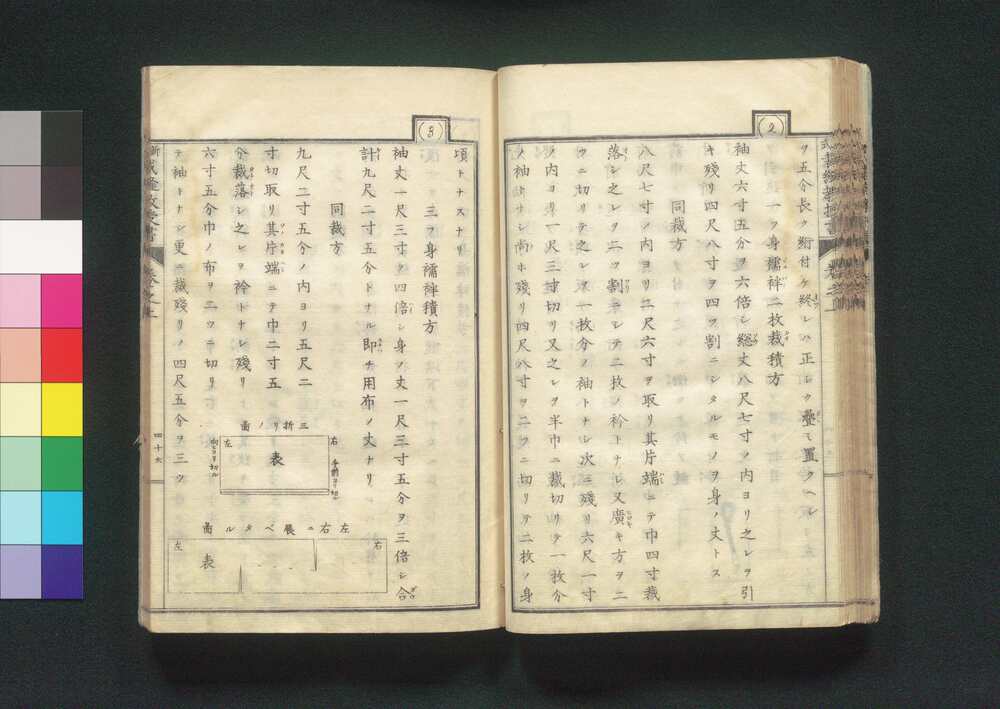 2
ヲ五分長ク絎付ケ終レハ正シク疊ミ置クヘシ
一ツ身襦袢二枚裁積方
袖丈六寸五分ヲ六倍シ總丈八尺七寸ノ内ヨリ之レヲ引
キ殘リ四尺八寸ヲ四ツ割ニシタルモノヲ身ノ丈トス
同裁方
八尺七寸ノ内ヨリ二尺六寸ヲ取リ其片端ニテ巾四寸裁
落シ之レヲ二ツ割ニシテ二枚ノ衿トナシ又廣キ方ヲ二
ツニ切リテ之レヲ一枚分ノ袖トナシ次ニ殘リ六尺一寸
ノ内ヨリ一尺三寸切リ又之レヲ半巾ニ裁切リテ一枚分
ノ袖トナシ尚ホ殘リ四尺八寸ヲ二ツニ切リテ二枚ノ身
3
頃トナスナリ
三ツ身襦袢積方
袖丈一尺三寸ヲ四倍シ身ノ丈一尺三寸五分ヲ三倍シ合
計九尺二寸五分トナル即チ用布ノ丈ナリ
同裁方
九尺二寸五分ノ内ヨリ五尺二
寸切取リ其片端ニテ巾二寸五
分裁落シ之レヲ衿トナシ殘リ
六寸五分巾ノ布ヲ二ツニ切リ
テ袖トナシ更ニ裁殘リノ四尺五分ヲ三ツ
三折リノ圖
右
左
表
左右ニ展ベタル圖
右
左
表
四十六